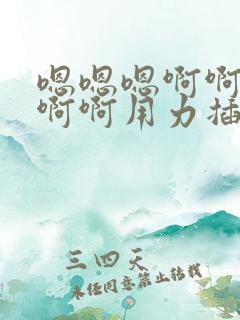 嗯嗯嗯啊啊
啊啊用力插
三四天
未经同意禁止转载